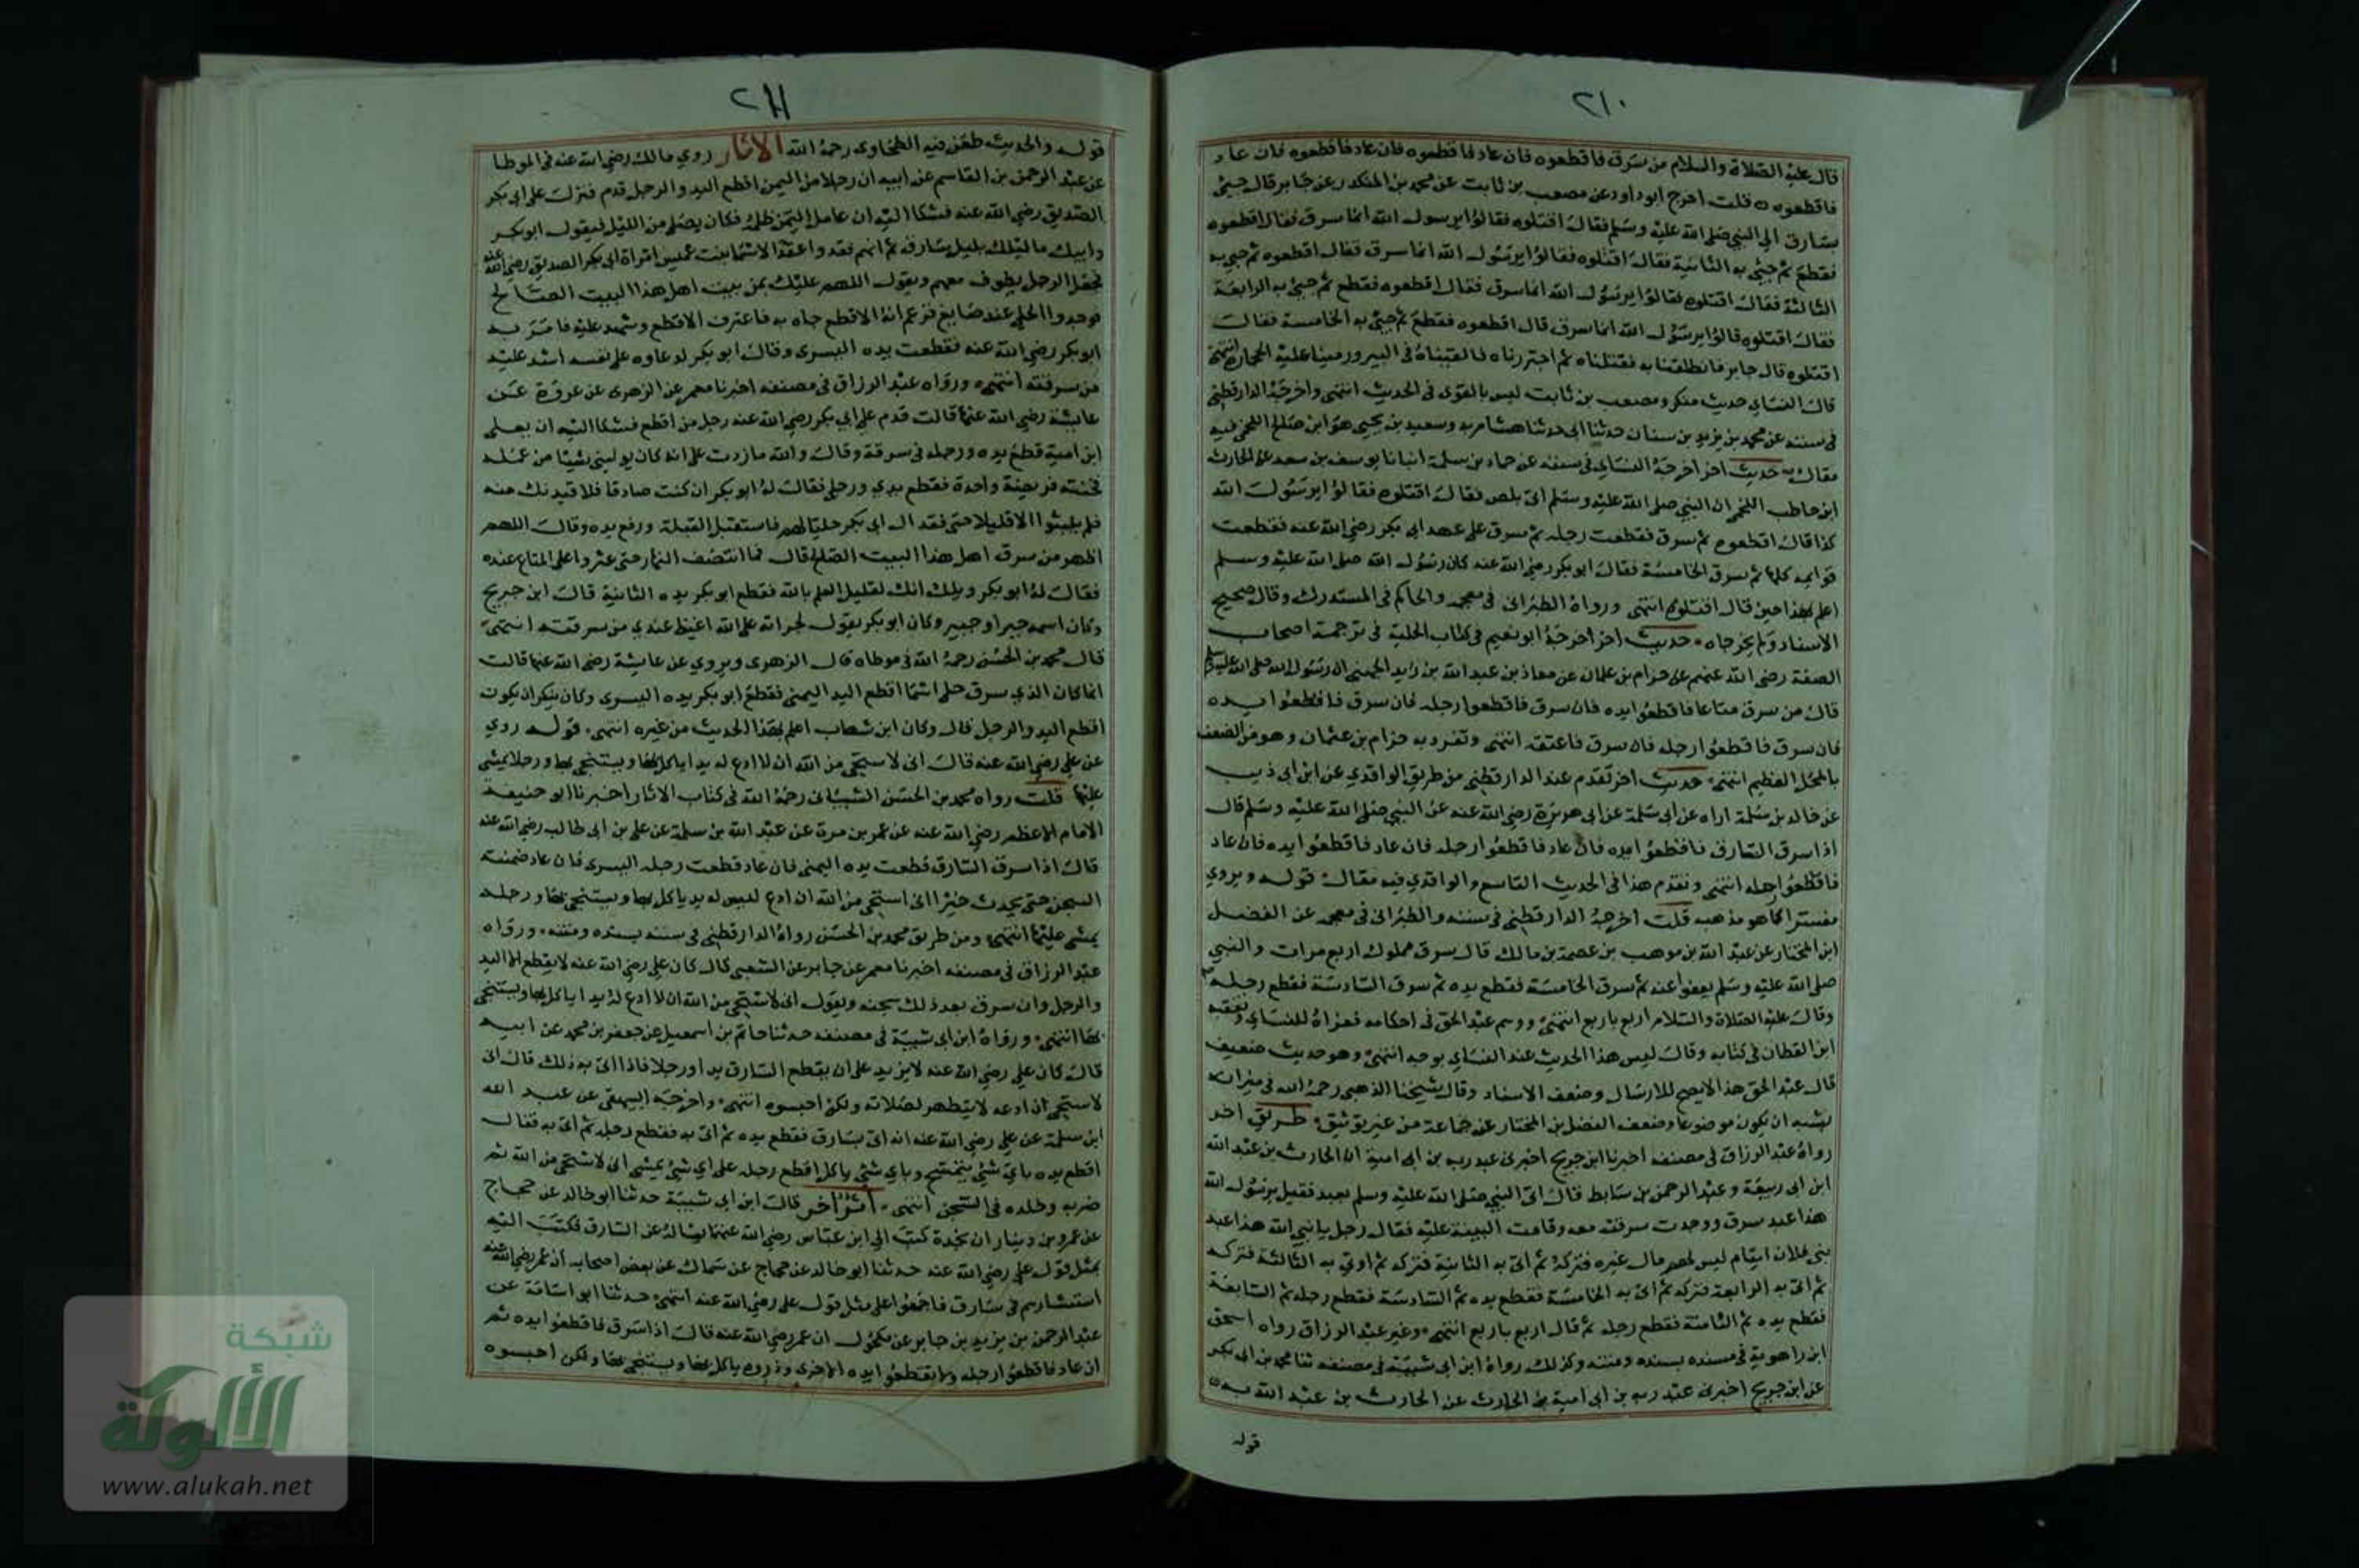 ٢١٠
قال عليه الصلاة والسلام من سرق فاقطعوه فان عاد فاقطعوه فان عاد فاقطعوه فان عاد
فاقطعوه قلت اخرج ابو داود عن مصعب بن ثابت عن محمد بن المنكدر عن جابر قال جيئ
بسارق الي النبي صلى الله عليه وسلم فقال اقتلوه فقالوا يرسول الله انما سرق فقال اقطعوه
فقطع ثم جيئ به الثانية فقال اقتلوه فقالوا يرسول الله انما سرق فقال اقطعوه ثم جيئ به
الثالثة فقال اقتلوه فقالوا يرسول الله انما سرق فقال اقطعوه فقطع ثم جيئ به الرابعة
فقال اقتلوه قالوا يرسول الله انما سرق قال اقطعوه فقطع ثم جيئ به الخامسة فقال
اقتلوه قال جابر فانطلقنا به فقتلناه ثم اجتررناه فالقيناه في البير ورمينا عليه الحجارة انتهى
قال النساي حديث منكر ومصعب بن ثابت ليس بالقوى في الحديث انتهى واخرجه الدارقطني
في سننه عن محمد بن يزيد بن سنان حدثنا ابى حدثنا هشام به وسعيد بن يحيى هو ابن صالح اللخمي فيه
مقال حديث اخر اخرجه النساي في سننه عن حماد بن سلمة انبانا يوسف بن سعد عن الحارث
ابن حاطب اللخمي ان النبي صلى الله عليه وسلم اتى بلص فقال اقتلوه فقالوا يرسول الله
كذا قال اقطعوه ثم سرق فقطعت رجله ثم سرق على عهد ابى بكر رضي الله عنه فقطعت
قوايمه كلها ثم سرق الخامسة فقال ابو بكر رضي الله عنه كان رسول الله صلى الله عليه وسلم
اعلم بهذا حين قال اقتلوه انتهى ورواه الطبراني في معجمه والحاكم في المستدرك وقال صحيح
الاسناد ولم يخرجاه حديث اخر اخرجه ابو نعيم في كتاب الحلية في ترجمة اصحاب
الصفة رضي الله عنهم عن حزام بن عثمان عن معاذ بن عبد الله بن زيد الجهني ان رسول الله صلى الله عليه وسلم
قال من سرق متاعا فاقطعوا يده فان سرق فاقطعوا رجله فان سرق فاقطعوا يده
فان سرق فاقطعوا رجله فان سرق فاعنقه انتهى وتفرد به حزام بن عثمان وهو من الضعف
بالمحل العظيم انتهى حديث اخر تقدم عند الدارقطني من طريق الواقدي عن ابن ابى ذيب
عن خالد بن سلمة اراه عن ابى سلمة عن ابى هريرة رضي الله عنه عن النبي صلى الله عليه وسلم قال
اذا سرق السارق فاقطعوا يده فان عاد فاقطعوا رجله فان عاد فاقطعوا يده فان عاد
فاقطعوا رجله انتهى وتقدم هذا في الحديث التاسع والواقدي فيه مقال قوله ويروي
مفسرا كما هو مذهبه قلت اخرجه الدارقطني في سننه والطبراني في معجمه عن الفضل
ابن المختار عن عبد الله بن موهب بن عصمة بن مالك قال سرق مملوك اربع مرات والنبي
صلى الله عليه وسلم يعفو عنه ثم سرق الخامسة فقطع يده ثم سرق السادسة فقطع رجله
وقال عليه الصلاة والسلام اربع باربع انتهى ووهم عبد الحق في احكامه فعزاه للنساي وتعقبه
ابن القطان في كتابه وقال ليس هذا الحديث عند النساي بوجه انتهى وهو حديث ضعيف
قال عبد الحق هذا لا يصح للارسال وضعف الاسناد وقال شيخنا الذهبي رحمه الله في ميزانه
يشبه ان يكون موضوعا وضعف الفضل بن المختار عن جماعة من غير توثيق طريق اخر
رواه عبد الرزاق في مصنفه اخبرنا ابن جريج اخبرنى عبد ربه بن ابى امية ان الحارث بن عبد الله
ابن ابى ربيعة وعبد الرحمن بن سابط قال اتى النبي صلى الله عليه وسلم بعبد فقيل يرسول الله
هذا عبد سرق ووجدت سرقته معه وقامت البينة عليه فقال رجل يا نبي الله هذا عبد
بني فلان ايتام ليس لهم مال غيره فتركه ثم اتى به الثانية فتركه ثم اوتي به الثالثة فتركه
ثم اتى به الرابعة فتركه ثم اتى به الخامسة فقطع يده ثم السادسة فقطع رجله ثم السابعة
فقطع يده ثم الثامنة فقطع رجله ثم قال اربع باربع انتهى وعن عبد الرزاق رواه اسحق
ابن راهوية في مسنده بسنده ومتنه وكذلك رواه ابن ابى شيبة في مصنفه ثنا محمد بن ابى بكر
عن ابن جريج اخبرنى عبد ربه بن ابى امية بن الحارث عن الحارث بن عبد الله به
قوله
٢١١
قوله والحديث طعن فيه الطحاوى رحمه الله الاثار روي مالك رضي الله عنه في الموطا
عن عبد الرحمن بن القاسم عن ابيه ان رجلا من اليمن اقطع اليد والرجل قدم فنزل على ابى بكر
الصديق رضي الله عنه فشكا اليه ان عامل اليمن ظلمه فكان يصلي من الليل فيقول ابو بكر
وابيك ما ليلك بليل سارق ثم انهم فقدوا عقدا لاسما بنت عميس امراة ابى بكر الصديق رضي الله عنه
فجعل الرجل يطوف معهم ويقول اللهم عليك بمن بيت اهل هذا البيت الصالح
فوجدوا الحلي عند صايغ فزعم انه الاقطع جاه به فاعترف الاقطع وشهد عليه فامر به
ابو بكر رضي الله عنه فقطعت يده اليسرى وقال ابو بكر لدعاوه على نفسه اشد عليه
من سرقته انتهى ورواه عبد الرزاق في مصنفه اخبرنا معمر عن الزهرى عن عروة عن
عايشة رضي الله عنها قالت قدم على ابي بكر رضي الله عنه رجل من اقطع فشكا اليه ان يعلى
ابن امية قطع يده ورجله في سرقة وقال والله ما زدت على انه كان يوليني شيئا من عمله
فخنته فريضة واحدة فقطع يدي ورجلي فقال له ابو بكر ان كنت صادقا فلاقيدنك منه
فلم يلبثوا الا قليلا حتى فقد ال ابى بكر حليا لهم فاستقبل القبلة ورفع يده وقال اللهم
اظهر من سرق اهل هذا البيت الصالح قال فما انتصف النهار حتى عثروا على المتاع عنده
فقال له ابو بكر ويلك انك لقليل العلم بالله فقطع ابو بكر يده الثانية قال ابن جريج
وكان اسمه جبر او جبير وكان ابو بكر يقول لجراته على الله اغيظ عندي من سرقته انتهى
قال محمد بن الحسن رحمه الله في موطاه قال الزهرى ويروي عن عايشة رضي الله عنها قالت
انما كان الذي سرق حلي اسما اقطع اليد اليمنى فقطع ابو بكر يده اليسرى وكان ينكر ان يكون
اقطع اليد والرجل قال وكان ابن شهاب اعلم بهذا الحديث من غيره انتهى قوله روي
عن علي رضي الله عنه قال انى لاستحي من الله ان لا ادع له يدا ياكل بها ويستنجي بها ورجلا يمشي
عليها قلت رواه محمد بن الحسن الشيباني رحمه الله في كتاب الاثار اخبرنا ابو حنيفة
الامام الاعظم رضي الله عنه عن عمر بن مرة عن عبد الله بن سلمة عن علي بن ابى طالب رضي الله عنه
قال اذا سرق السارق قطعت يده اليمنى فان عاد قطعت رجله اليسرى فان عاد ضمنته
السجن حتى يحدث خيرا انى استحي من الله ان ادع ليس له يد ياكل بها ويستنجي بها ورجله
يمشي عليها انتهى ومن طريق محمد بن الحسن رواه الدارقطني في سننه بسنده ومتنه ورواه
عبد الرزاق في مصنفه اخبرنا معمر عن جابر عن الشعبى قال كان علي رضي الله عنه لا يقطع الا اليد
والرجل وان سرق بعد ذلك سجنه ويقول انى لاستحي من الله ان لا ادع له يدا ياكل بها ويستنجي
بها انتهى ورواه ابن ابى شيبة في مصنفه حدثنا حاتم بن اسمعيل عن جعفر بن محمد عن ابيه
قال كان علي رضي الله عنه لا يزيد على ان يقطع السارق يدا ورجلا فاذا اتى به ذلك قال انى
لاستحي ان ادعه لا يتطهر لصلاته ولكن احبسوه انتهى واخرجه البيهقى عن عبد الله
ابن سلمة عن علي رضي الله عنه انه اتى بسارق فقطع يده ثم اتى به فقطع رجله ثم اتى به فقال
اقطع يده باي شيئ يتمسح وباي شيئ ياكل اقطع رجله على اي شيئ يمشي انى لاستحي من الله ثم
ضربه وخلده في السجن انتهى اثر اخر قال ابن ابى شيبة حدثنا ابو خالد عن حجاج
عن عمرو بن دينار ان نجدة كتب الى ابن عباس رضي الله عنهما يساله عن السارق فكتب اليه
بمثل قول علي رضي الله عنه حدثنا ابو خالد عن حجاج عن سماك عن بعض اصحابه ان عمر رضي الله عنه
استشارهم في سارق فاجمعوا على مثل قول على رضي الله عنه انتهى حدثنا ابو اسامة عن
عبد الرحمن بن يزيد بن جابر عن مكحول ان عمر رضي الله عنه قال اذا سرق فاقطعوا يده ثم
ان عاد فاقطعوا رجله ولا تقطعوا يده الاخرى وذروه ياكل بها ويستنجي بها ولكن احبسوه
شبكة
الألوكة
www.alukah.net